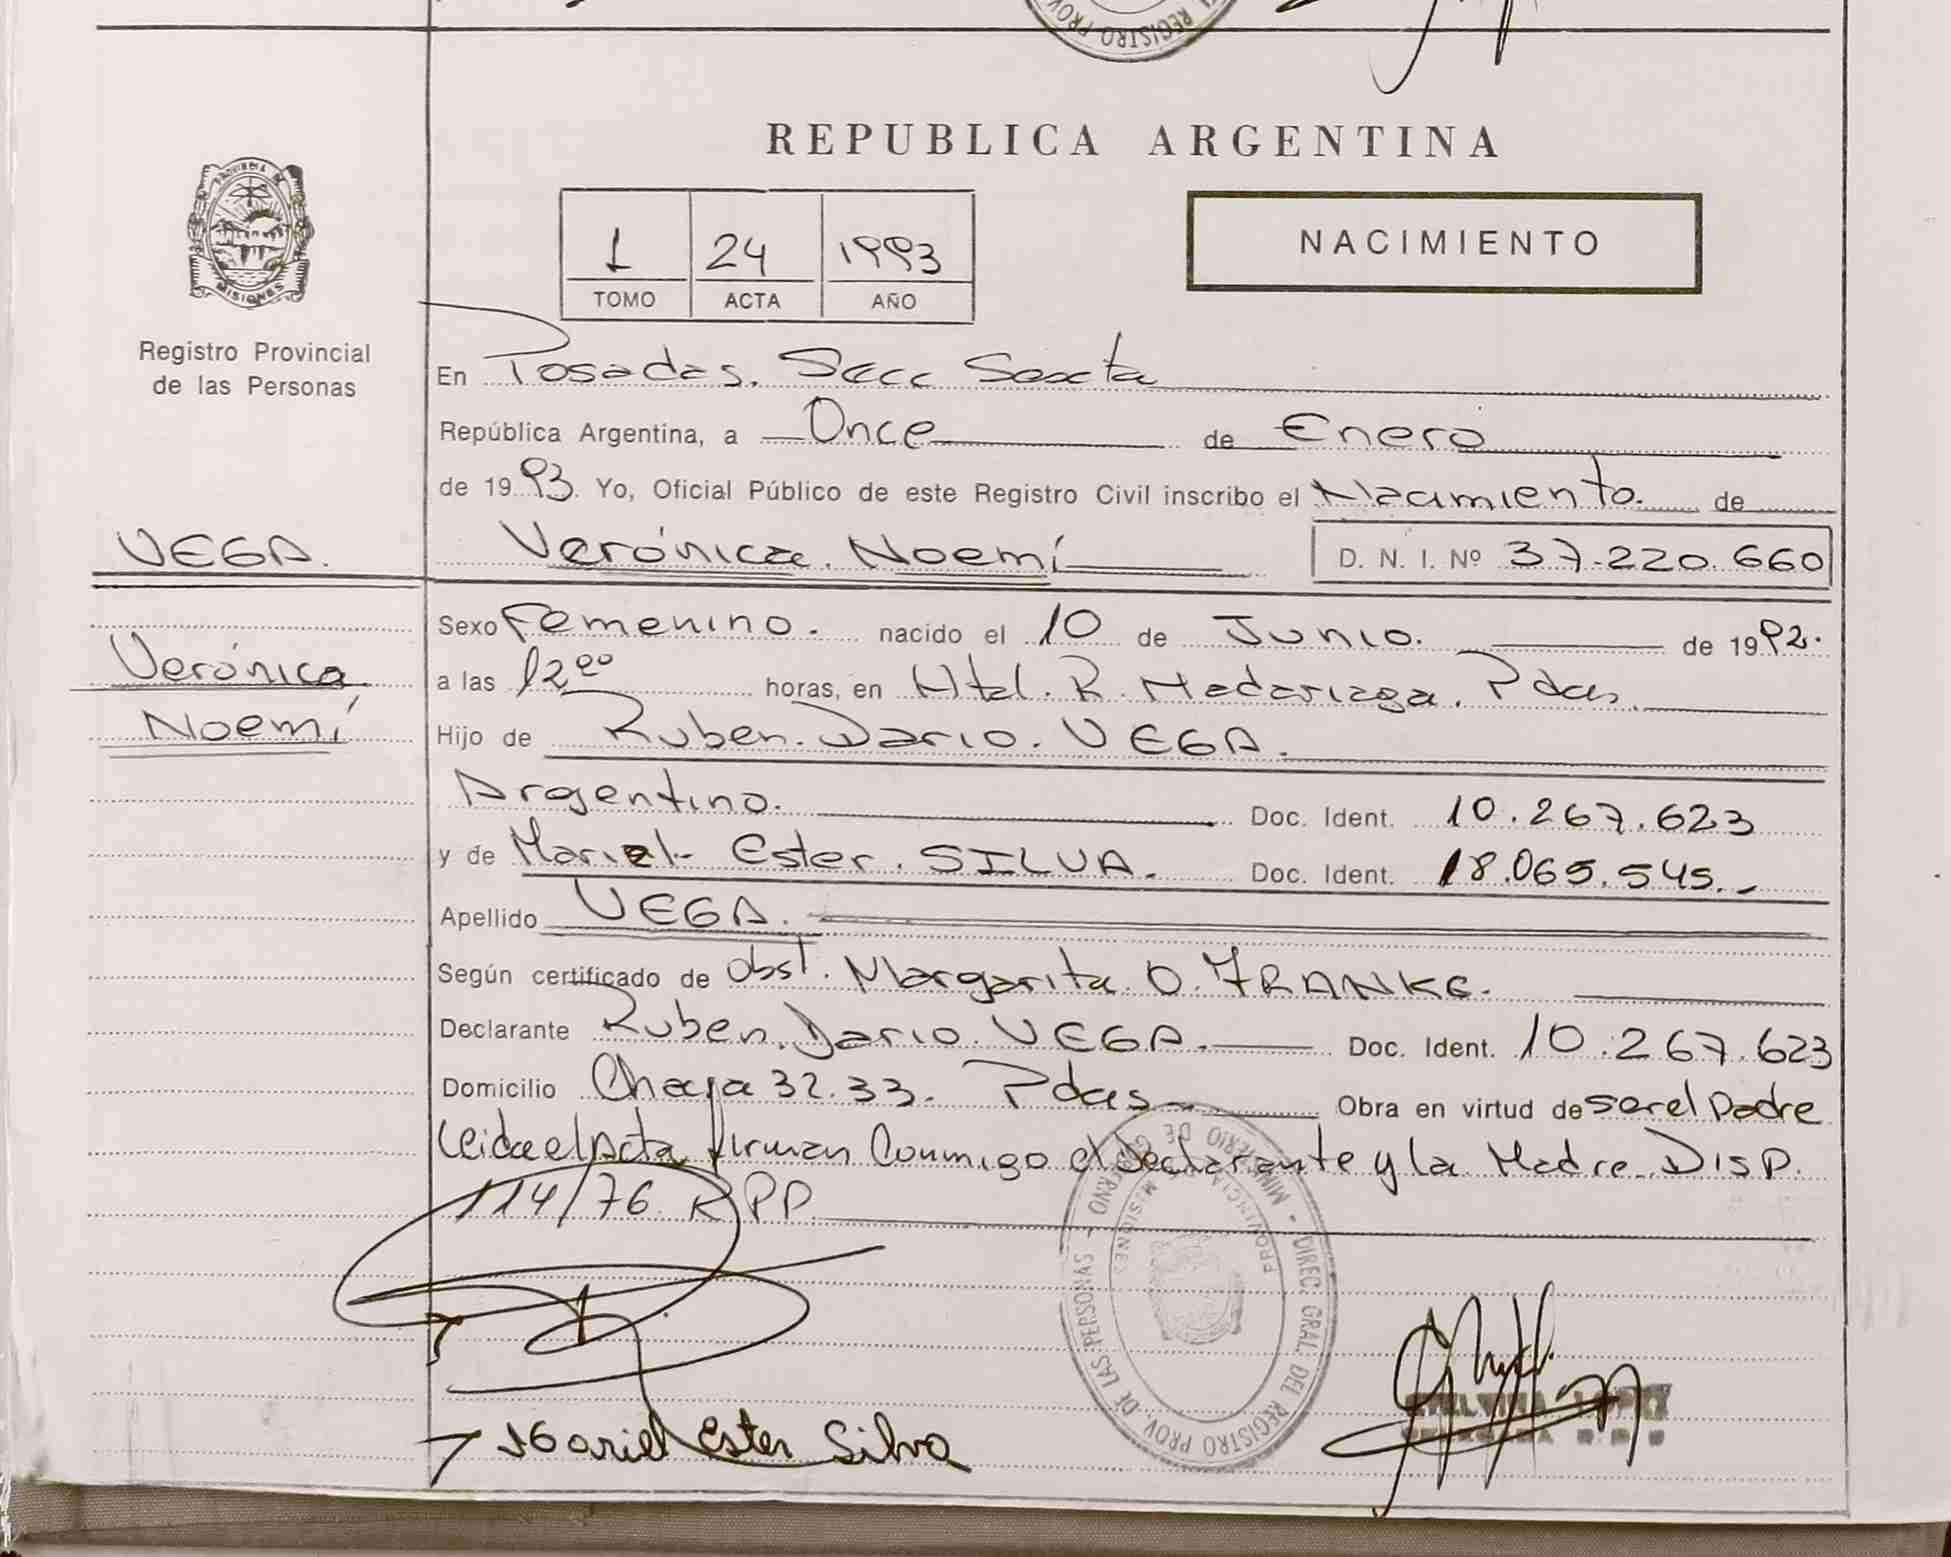 REPUBLICA ARGENTINA
PROVINCIA DE
MISIONES
Registro Provincial
de las Personas
1 24 1993
TOMO ACTA AÑO
NACIMIENTO
En Posadas. Secc Sexta
República Argentina, a Once de Enero
de 1993. Yo, Oficial Público de este Registro Civil inscribo el Nacimiento. de
VEGA. Verónica. Noemí D. N. I. Nº 37.220.660
Sexo Femenino. nacido el 10 de Junio. de 1992.
Verónica
a las 12 00 horas, en Htal. R. Madariaga. Pdas.
Noemí
Hijo de Ruben. Dario. VEGA.
Argentino. Doc. Ident. 10.267.623
y de Mariel- Ester. SILVA. Doc. Ident. 18.065.545.-
Apellido VEGA.
Según certificado de Obst. Margarita. O. FRANKE.
Declarante Ruben. Dario. VEGA. Doc. Ident. 10.267.623
Domicilio Chapa 32.33. Pdas Obra en virtud de ser el Padre
Leida el Acta firman Conmigo el declarante y la Madre. Disp.
114/76. RPP.
MINISTERIO DE GOBIERNO - DIREC. GRAL. DEL REGISTRO PROV. DE LAS PERSONAS
PROVINCIA DE MISIONES
Mariel Ester Silva